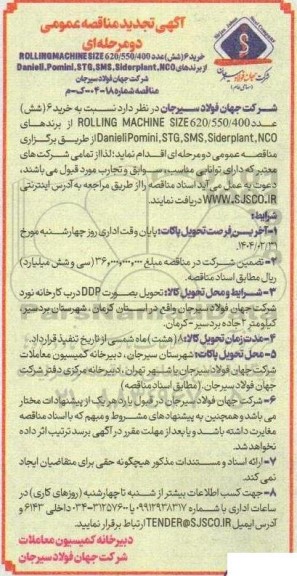 آگهی تجدید مناقصه عمومی
دو مرحله ای
خرید ۶ (شش) عدد ROLLING MACHINE SIZE 620/550/400
از برندهای Danieli, Pomini, STG, SMS, Siderplant, NCO
شرکت جهان فولاد سیرجان
مناقصه شماره ۱۸-۰۴-ک-م
شرکت جهان فولاد سیرجان
شرکت جهان فولاد سیرجان در نظر دارد نسبت به خرید ۶ (شش)
عدد ROLLING MACHINE SIZE 620/550/400 از برندهای
Danieli Pomini, STG, SMS, Siderplant, NCO از طریق برگزاری
مناقصه عمومی دو مرحله ای اقدام نماید؛ لذا از تمامی شرکت های
معتبر که دارای توانایی مناسب، سوابق و تجارب مورد قبول می باشند،
دعوت به عمل می آید اسناد مناقصه را از طریق مراجعه به آدرس اینترنتی
WWW.SJSCO.IR دریافت نمایند.
شرایط:
۱- آخرین فرصت تحویل پاکات: پایان وقت اداری روز چهارشنبه مورخ
۱۴۰۴/۰۲/۳۱
۲- تضمین شرکت در مناقصه مبلغ ۳۶,۰۰۰,۰۰۰,۰۰۰ (سی و شش میلیارد)
ریال مطابق اسناد مناقصه.
۳- شرایط و محل تحویل کالا: تحویل بصورت DDP درب کارخانه نورد
شرکت جهان فولاد سیرجان واقع در استان کرمان، شهرستان بردسیر،
کیلومتر ۲ جاده بردسیر - کرمان.
۴- مدت زمان تحویل کالا: ۸ (هشت) ماه شمسی از تاریخ تنفیذ قرارداد.
۵- محل تحویل پاکات: شهرستان سیرجان، دبیرخانه کمیسیون معاملات
شرکت جهان فولاد سیرجان یا شهر تهران، دبیرخانه مرکزی دفتر شرکت
جهان فولاد سیرجان. (مطابق اسناد مناقصه)
۶- شرکت جهان فولاد سیرجان در قبول یا رد هر یک از پیشنهادات مختار
می باشد و همچنین به پیشنهادهای مشروط و مبهم که با اسناد مناقصه
مغایرت داشته باشد، و یا بعد از مهلت مقرر در آگهی برسد ترتیب اثر داده
نخواهد شد.
۷- ارائه اسناد و مستندات مذکور هیچگونه حقی برای متقاضیان ایجاد
نمی کند.
۸- جهت کسب اطلاعات بیشتر از شنبه تا چهارشنبه (روزهای کاری) در
ساعات اداری با شماره ۰۹۹۱۲۹۳۸۳۱۷ یا ۰۳۴-۳۱۲۵۷۶۰ داخلی ۶۱۴۳ و
آدرس ایمیل TENDER@SJSCO.IR ارتباط برقرار نمایید.
دبیرخانه کمیسیون معاملات
شرکت جهان فولاد سیرجان